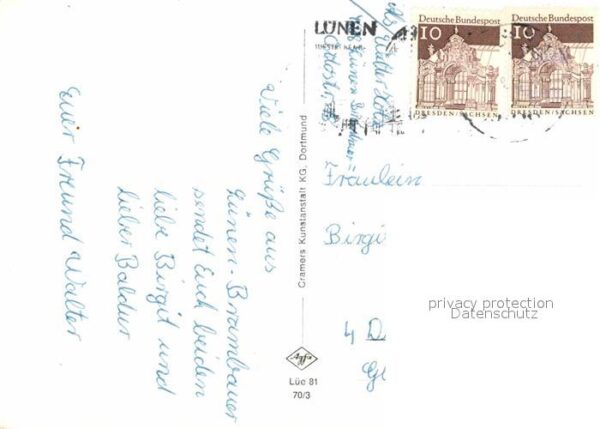 Viele Grüße aus
Lünen-Brambauer
sendet Euch beiden
liebe Birgit und
lieber Baldur
Euer Freund Walter
Cramers Kunstanstalt KG, Dortmund
Agfa
Lüe 81
70/3
LÜNEN
Deutsche Bundespost
10
DRESDEN/SACHSEN
Deutsche Bundespost
10
DRESDEN/SACHSEN
Abs. Walter
Lünen Brambauer
Fräulein
Birgi
4 D
privacy protection
Datenschutz